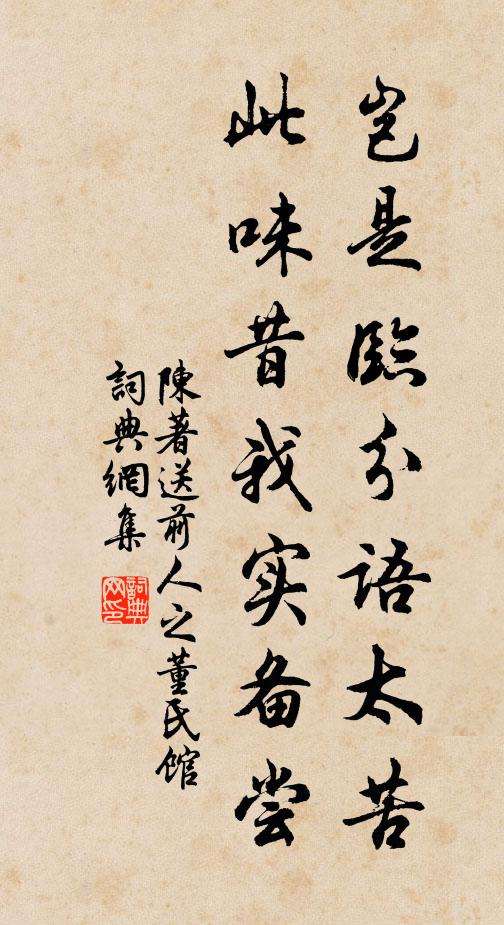 岂是临分语太苦
此味昔我实备尝
陳著送前人之董氏館
詞典網集
詞典网印